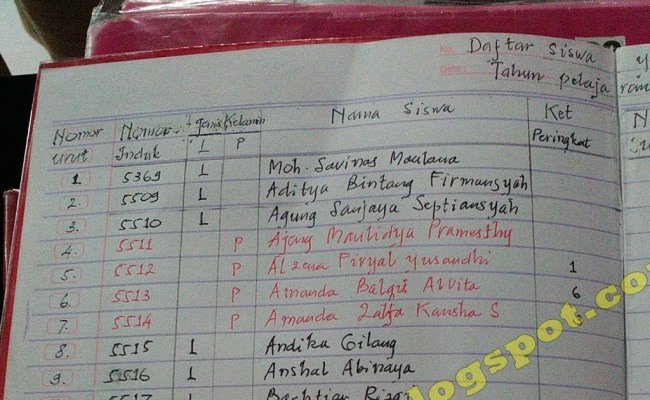 No. Daftar siswa
Date: Tahun pelaja
Nomor urut Nomor Induk Jenis Kelamin L P Nama Siswa Ket Peringkat
1. 5369 L Moh. Savinas Maulana
2. 5509 L Aditya Bintang Firmansyah
3. 5510 L Agung Sanjaya Septiansyah
4. 5511 P Ajeng Maulidya Pramesthy
5. 5512 P Alzena Firyal Yusandhi 1
6. 5513 P Amanda Balqis Alvita 6
7. 5514 P Amanda Zalfa Kansha S
8. 5515 L Andika Gilang
9. 5516 L Anshal Abinaya
5517 L Bachtiar
logspot.co